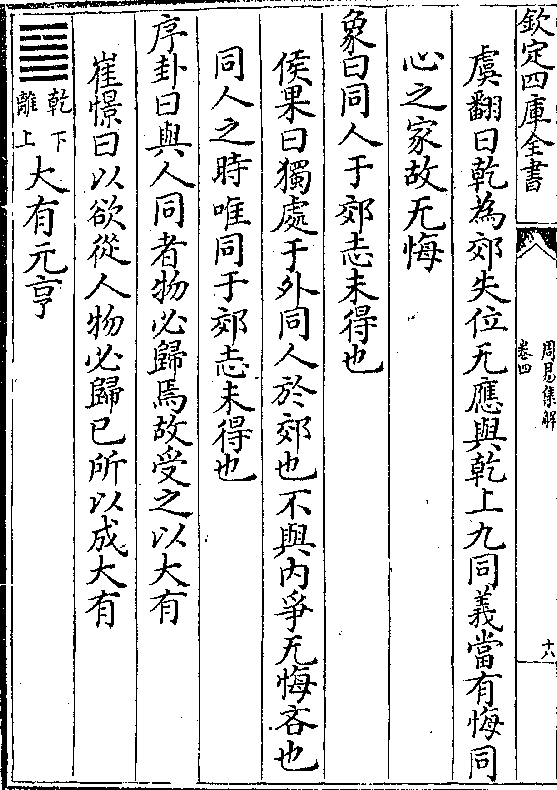 欽定四庫全書
周易集解
卷四
十八
虞翻曰乾為郊失位无應與乾上九同義當有悔同
心之家故无悔
象曰同人于郊志未得也
侯果曰獨處于外同人於郊也不與內爭无悔吝也
同人之時唯同于郊志未得也
序卦曰與人同者物必歸焉故受之以大有
崔憬曰以欲從人物必歸已所以成大有
乾下
離上
大有元亨